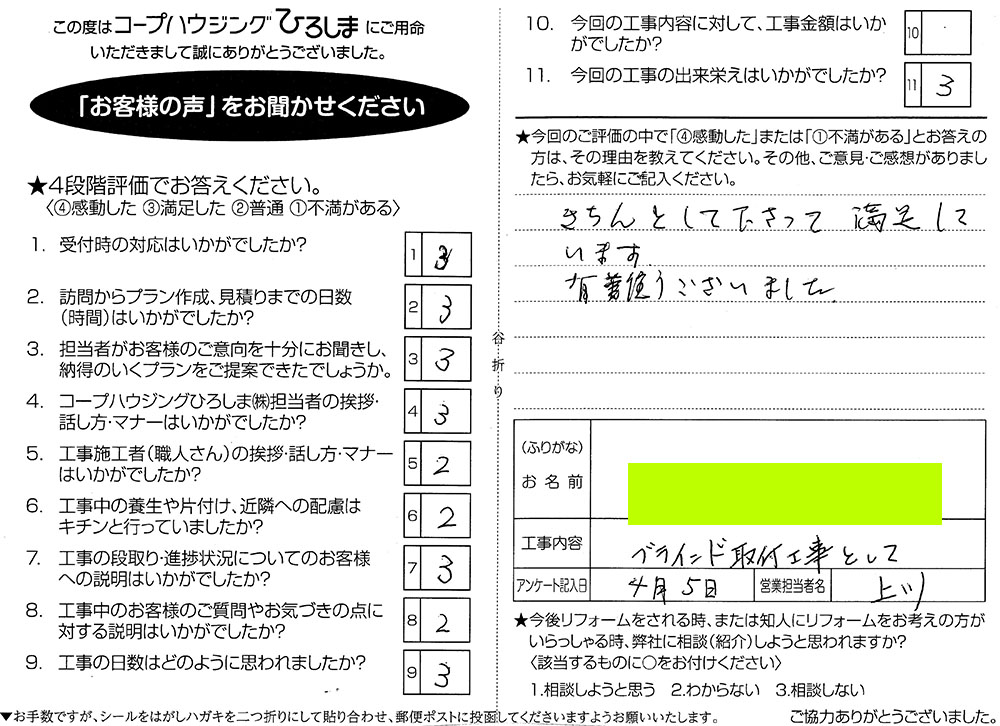 この度はコープハウジングひろしまにご用命
いただきまして誠にありがとうございました。
「お客様の声」をお聞かせください
★4段階評価でお答えください。
〈④感動した ③満足した ②普通 ①不満がある〉
1. 受付時の対応はいかがでしたか?
1 3
2. 訪問からプラン作成、見積りまでの日数
(時間)はいかがでしたか?
2 3
3. 担当者がお客様のご意向を十分にお聞きし、
納得のいくプランをご提案できたでしょうか。
3 3
4. コープハウジングひろしま㈱担当者の挨拶・
話し方・マナーはいかがでしたか?
4 3
5. 工事施工者(職人さん)の挨拶・話し方・マナー
はいかがでしたか?
5 2
6. 工事中の養生や片付け、近隣への配慮は
キチンと行っていましたか?
6 2
7. 工事の段取り・進捗状況についてのお客様
への説明はいかがでしたか?
7 3
8. 工事中のお客様のご質問やお気づきの点に
対する説明はいかがでしたか?
8 2
9. 工事の日数はどのように思われましたか?
9 3
▼お手数ですが、シールをはがしハガキを二つ折りにして貼り合わせ、郵便ポストに投函してくださいますようお願いいたします。
谷折り
10. 今回の工事内容に対して、工事金額はいか
がでしたか?
10
11. 今回の工事の出来栄えはいかがでしたか?
11 3
★今回のご評価の中で「④感動した」または「①不満がある」とお答えの
方は、その理由を教えてください。その他、ご意見・ご感想がありまし
たら、お気軽にご記入ください。
きちんとして下さって 満足して
います
有難うございました
(ふりがな)
お名前
工事内容 ブラインド取付工事として
アンケート記入日 4月5日 営業担当者名 上川
★今後リフォームをされる時、または知人にリフォームをお考えの方が
いらっしゃる時、弊社に相談(紹介)しようと思われますか?
〈該当するものに○をお付けください〉
1.相談しようと思う 2.わからない 3.相談しない
ご協力ありがとうございました。